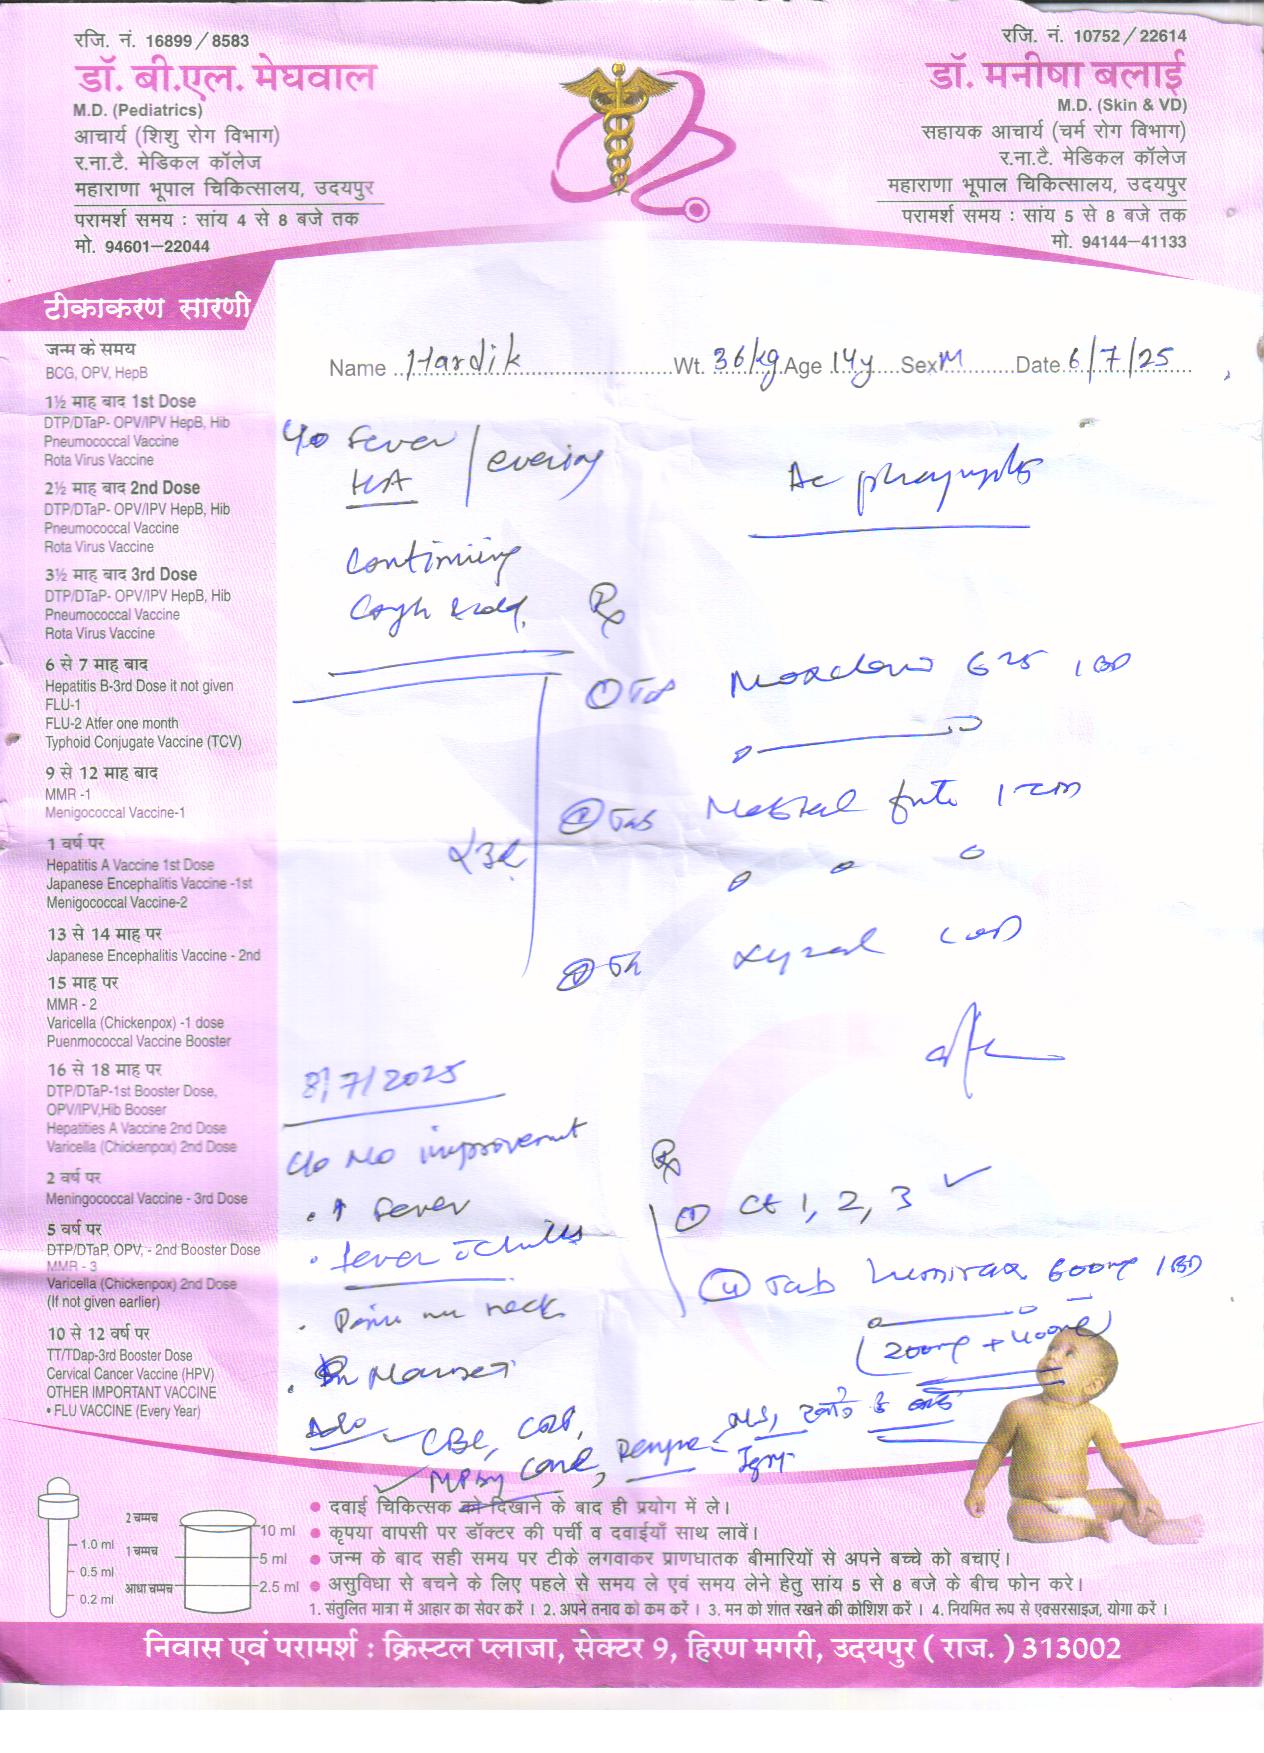 रजि. नं. 16899/8583
डॉ. बी.एल. मेघवाल
M.D. (Pediatrics)
आचार्य (शिशु रोग विभाग)
र.ना.टै. मेडिकल कॉलेज
महाराणा भूपाल चिकित्सालय, उदयपुर
परामर्श समय : सांय 4 से 8 बजे तक
मो. 94601-22044
रजि. नं. 10752/22614
डॉ. मनीषा बलाई
M.D. (Skin & VD)
सहायक आचार्य (चर्म रोग विभाग)
र.ना.टै. मेडिकल कॉलेज
महाराणा भूपाल चिकित्सालय, उदयपुर
परामर्श समय : सांय 5 से 8 बजे तक
मो. 94144-41133
टीकाकरण सारणी
जन्म के समय
BCG, OPV, HepB
1½ माह बाद 1st Dose
DTP/DTaP- OPV/IPV HepB, Hib
Pneumococcal Vaccine
Rota Virus Vaccine
2½ माह बाद 2nd Dose
DTP/DTaP- OPV/IPV HepB, Hib
Pneumococcal Vaccine
Rota Virus Vaccine
3½ माह बाद 3rd Dose
DTP/DTaP- OPV/IPV HepB, Hib
Pneumococcal Vaccine
Rota Virus Vaccine
6 से 7 माह बाद
Hepatitis B-3rd Dose it not given
FLU-1
FLU-2 Atfer one month
Typhoid Conjugate Vaccine (TCV)
9 से 12 माह बाद
MMR -1
Menigococcal Vaccine-1
1 वर्ष पर
Hepatitis A Vaccine 1st Dose
Japanese Encephalitis Vaccine -1st
Menigococcal Vaccine-2
13 से 14 माह पर
Japanese Encephalitis Vaccine - 2nd
15 माह पर
MMR - 2
Varicella (Chickenpox) -1 dose
Puenmococcal Vaccine Booster
16 से 18 माह पर
DTP/DTaP-1st Booster Dose,
OPV/IPV,Hib Booser
Hepatities A Vaccine 2nd Dose
Varicella (Chickenpox) 2nd Dose
2 वर्ष पर
Meningococcal Vaccine - 3rd Dose
5 वर्ष पर
DTP/DTaP, OPV, - 2nd Booster Dose
MMR - 3
Varicella (Chickenpox) 2nd Dose
(If not given earlier)
10 से 12 वर्ष पर
TT/TDap-3rd Booster Dose
Cervical Cancer Vaccine (HPV)
OTHER IMPORTANT VACCINE
• FLU VACCINE (Every Year)
Name Hardik Wt. 36/kg Age 14y Sex M Date 6/7/25
c/o Fever / evening
HA
Continuing
Cough & cold.
Ac pharyngitis
Rx
① Tab Moxclav 625 1 BD
② Tab forte 1 TDS
Xyzal 1 OD
8/7/2025
c/o No improvement
• ↑ Fever
• fever c chills
• Pain in neck
• Nausea
Rx
① Ct 1, 2, 3 ✓
④ Tab 600mg 1 BD
(200mg + 400mg)
Adv CBC, CRP,
MP by card, Dengue - NS1, IgM
2 चम्मच
1 चम्मच
आधा चम्मच
1.0 ml
0.5 ml
0.2 ml
10 ml
5 ml
2.5 ml
• दवाई चिकित्सक को दिखाने के बाद ही प्रयोग में ले।
• कृपया वापसी पर डॉक्टर की पर्ची व दवाईयाँ साथ लावें।
• जन्म के बाद सही समय पर टीके लगवाकर प्राणघातक बीमारियों से अपने बच्चे को बचाएं।
• असुविधा से बचने के लिए पहले से समय ले एवं समय लेने हेतु सांय 5 से 8 बजे के बीच फोन करे।
1. संतुलित मात्रा में आहार का सेवर करें । 2. अपने तनाव को कम करें । 3. मन को शांत रखने की कोशिश करें । 4. नियमित रूप से एक्सरसाइज, योगा करें ।
निवास एवं परामर्श : क्रिस्टल प्लाजा, सेक्टर 9, हिरण मगरी, उदयपुर ( राज. ) 313002